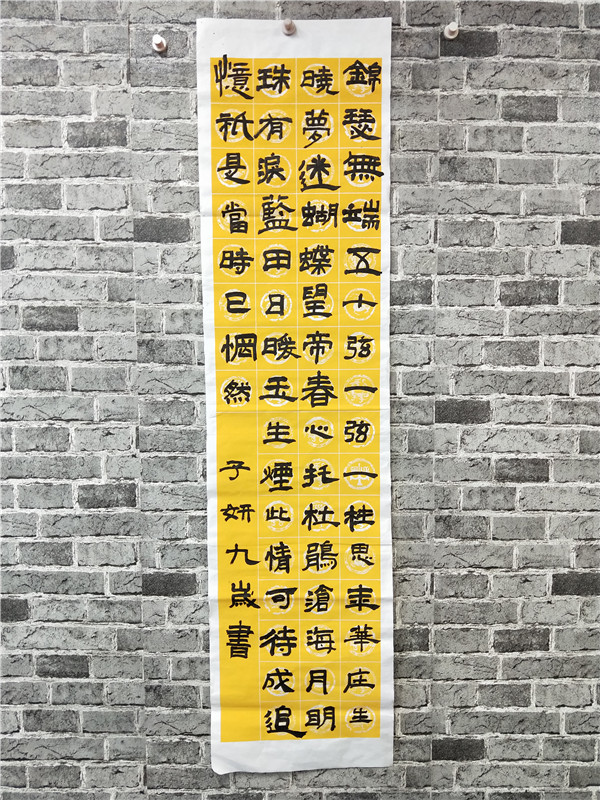 錦瑟無端五十弦一弦一柱思年華庄生
曉夢迷蝴蝶望帝春心托杜鵑滄海月明
珠有淚藍田日暖玉生煙此情可待成追
憶衹是當時已惘然
子妍九歲書